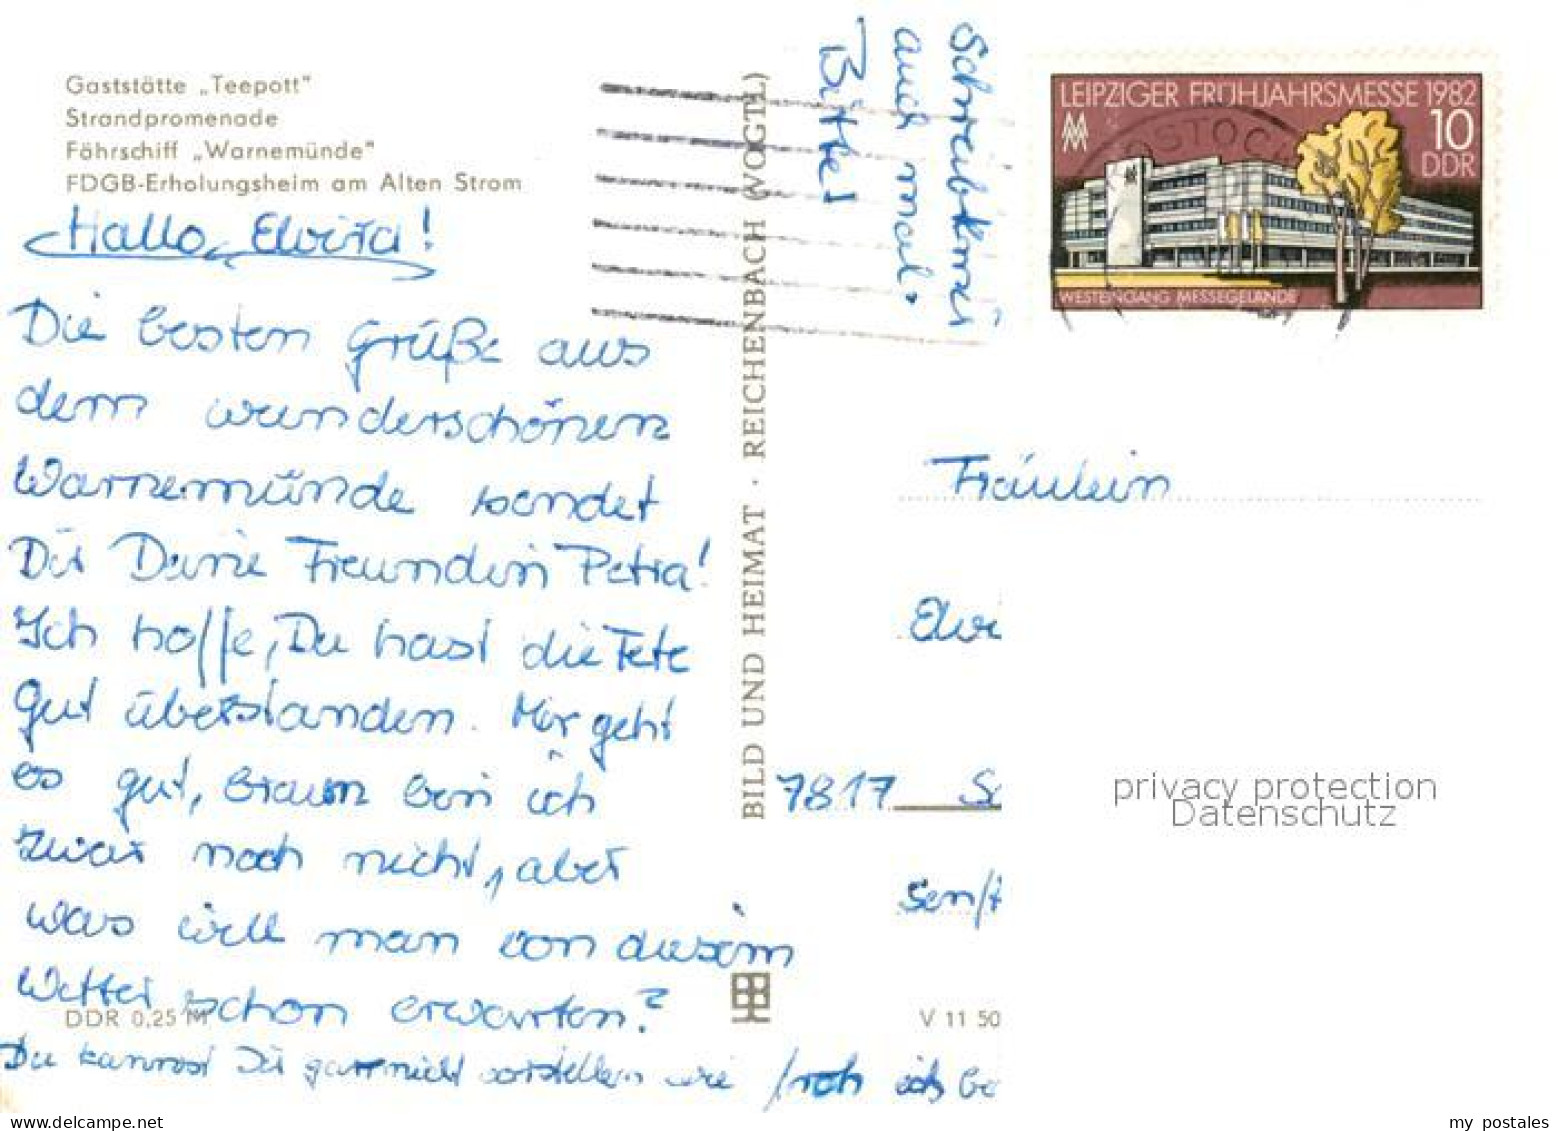 Gaststätte „Teepott"
Strandpromenade
Fährschiff „Warnemünde"
FDGB-Erholungsheim am Alten Strom
Hallo, Elvira!
Die besten Grüße aus
dem wunderschönen
Warnemünde sendet
Dir Deine Freundin Petra!
Ich hoffe, Du hast die Fete
gut überstanden. Mir geht
es gut, braun bin ich
zwar noch nicht, aber
was will man von diesem
Wetter schon erwarten?
DDR 0,25 M
Du kannst Dir garnicht vorstellen wie froh ich b
Schreibt mir
auch mal.
Bitte!
BILD UND HEIMAT · REICHENBACH (VOGTL)
LEIPZIGER FRÜHJAHRSMESSE 1982
10
DDR
OSTOC
WESTEINGANG MESSEGELÄNDE
Fräulein
Elvi
7817 Sc
Senft
V 11 50
privacy protection
Datenschutz
my postales